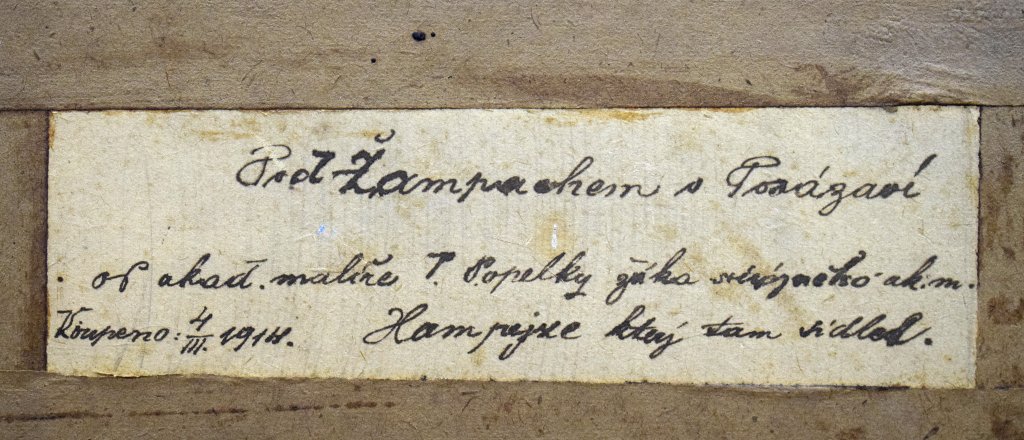 Pod Žampachem v Posázaví
od akad. malíře P. Popelky žáka ak. m.
Koupeno: 4/III. 1914. Hampejze který tam sídlel.